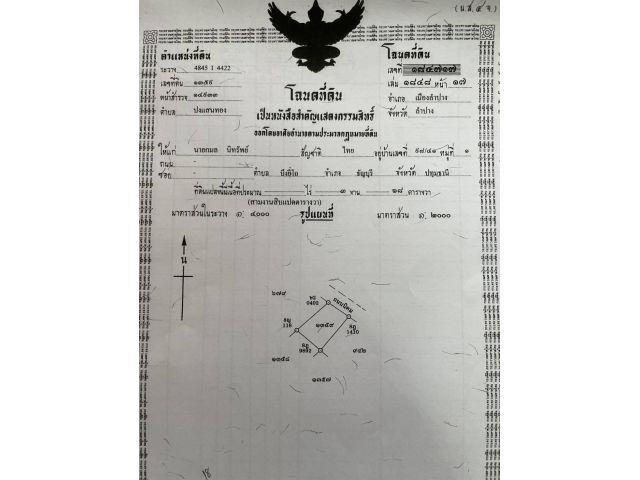 (น.ส.๔ จ.)
ตำแหน่งที่ดิน
ระวาง 4845 I 4422
เลขที่ดิน ๑๓๕๙
หน้าสำรวจ ๑๔๙๓๓
ตำบล ปงแสนทอง
โฉนดที่ดิน
เลขที่ ๑๘๔๗๑๗
เล่ม ๑๘๔๘ หน้า ๑๗
อำเภอ เมืองลำปาง
จังหวัด ลำปาง
โฉนดที่ดิน
เป็นหนังสือสำคัญแสดงกรรมสิทธิ์
ออกโดยอาศัยอำนาจตามประมวลกฎหมายที่ดิน
ให้แก่ นายกมล นิทรัพย์ สัญชาติ ไทย อยู่บ้านเลขที่ ๙๗/๔๑ หมู่ที่ ๑
ถนน -
ซอย - ตำบล บึงยี่โถ อำเภอ ธัญบุรี จังหวัด ปทุมธานี
ที่ดินแปลงนี้มีเนื้อที่ประมาณ - ไร่ ๓ งาน ๑๘ ตารางวา
(สามงานสิบแปดตารางวา)
มาตราส่วนในระวาง ๑: ๔๐๐๐ รูปแผนที่ มาตราส่วน ๑: ๒๐๐๐
น
๒๗๙
0402
ถนนนิคม
116
๑๓๕๙
1430
9802
๙๔๒
๑๓๕๘
๑๓๕๗
18